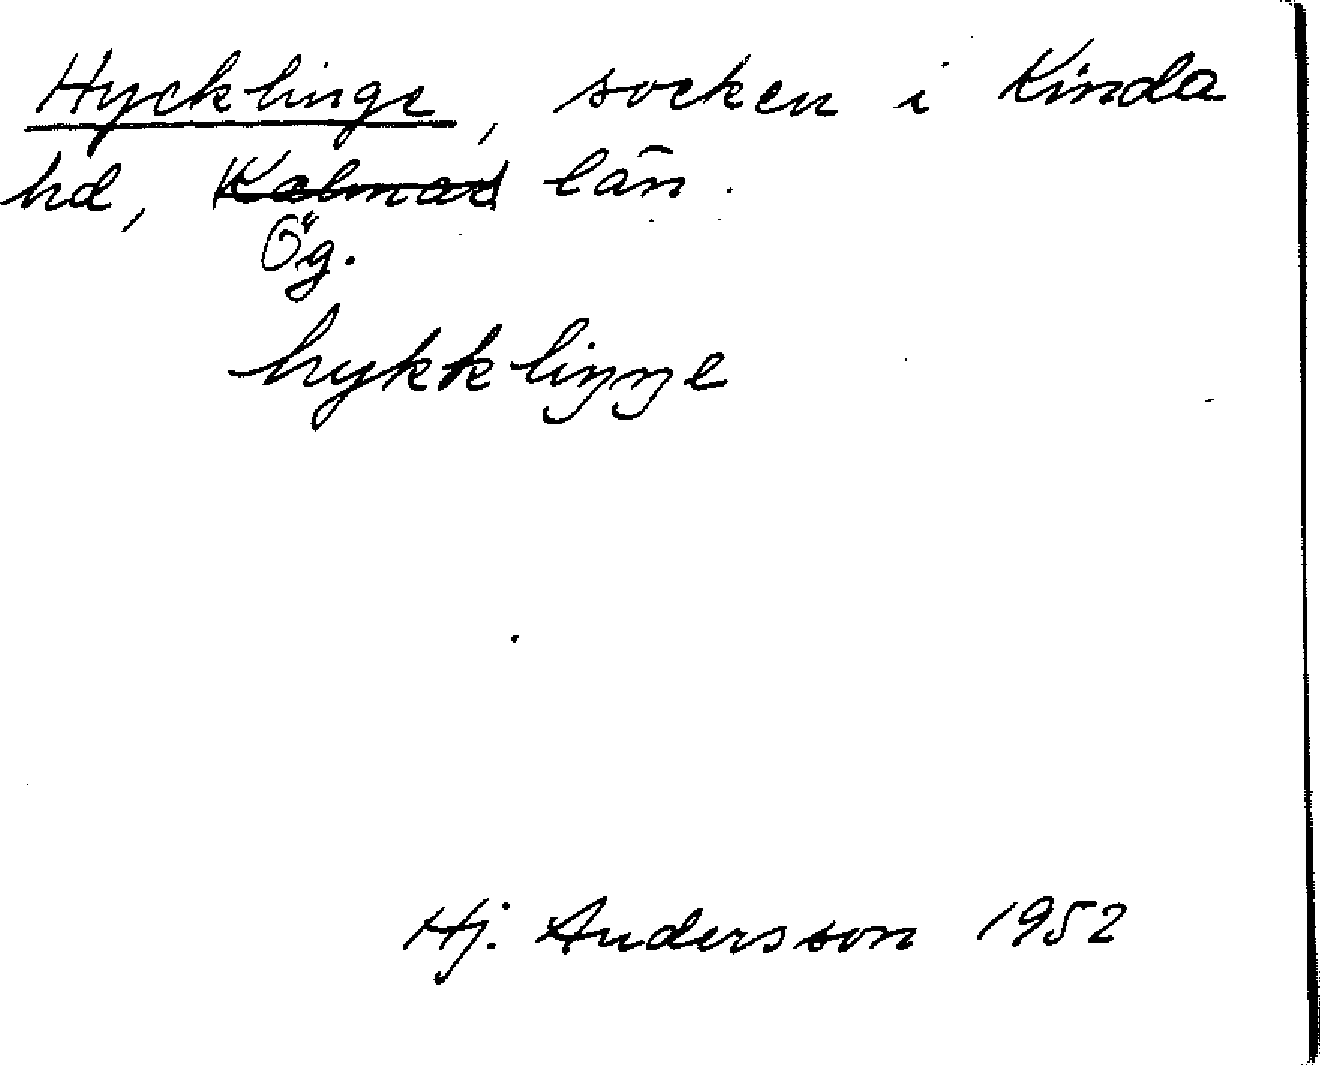 Hycklinge, socken i Kinda
hd, Kalmar län.
Ög.
hykkliŋŋe
Hj. Andersson 1952